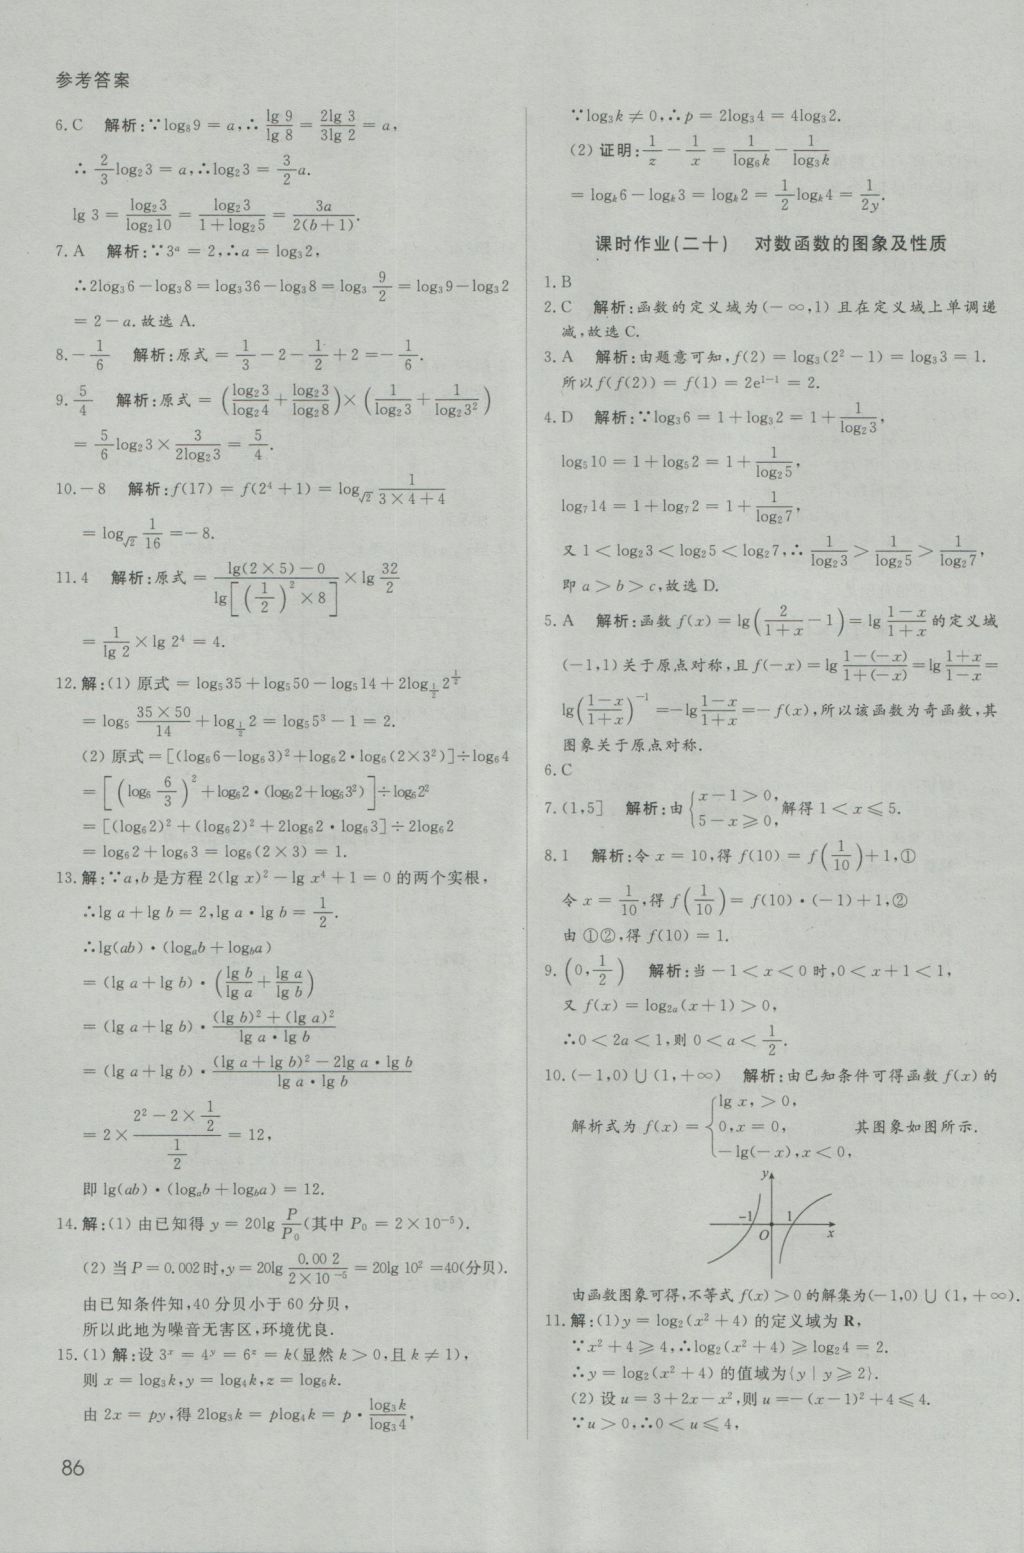 参考答案
6.C 解析:∵log₈9 = a,∴ lg 9/lg 8 = 2lg 3/3lg 2 = a,
∴ 2/3 log₂3 = a,∴log₂3 = 3/2 a.
lg 3 = log₂3/log₂10 = log₂3/(1+log₂5) = 3a/2(b+1).
7.A 解析:∵3ᵃ = 2,∴a = log₃2,
∴2log₃6-log₃8 = log₃36-log₃8 = log₃ 9/2 = log₃9-log₃2
= 2-a.故选 A.
8.-1/6 解析:原式 = 1/3 -2- 1/2 +2 =- 1/6.
9. 5/4 解析:原式 = (log₂3/log₂4 + log₂3/log₂8)×(1/log₂3 + 1/log₂3²)
= 5/6 log₂3× 3/2log₂3 = 5/4.
10.-8 解析:f(17) = f(2⁴+1) = log_√2 1/(3×4+4)
= log_√2 1/16 =-8.
11.4 解析:原式 = (lg(2×5)-0)/(lg[(1/2)²×8]) ×lg 32/2
= 1/lg 2 ×lg 2⁴ = 4.
12.解:(1) 原式 = log₅35+log₅50-log₅14+2log_{1/2} 2^{1/2}
= log₅ (35×50)/14 +log_{1/2} 2 = log₅5³-1 = 2.
(2) 原式=[(log₆6-log₆3)²+log₆2·log₆(2×3²)]÷log₆4
=[(log₆ 6/3)²+log₆2·(log₆2+log₆3²)]÷log₆2²
= [(log₆2)²+(log₆2)²+2log₆2·log₆3]÷2log₆2
= log₆2+log₆3 = log₆(2×3) = 1.
13.解:∵a,b 是方程 2(lg x)²-lg x⁴+1 = 0 的两个实根,
∴lg a+lg b = 2,lg a·lg b = 1/2.
∴lg(ab)·(log_a b+log_b a)
= (lg a+lg b)·(lg b/lg a + lg a/lg b)
= (lg a+lg b)· ((lg b)²+(lg a)²)/(lg a·lg b)
= (lg a+lg b)· ((lg a+lg b)²-2lg a·lg b)/(lg a·lg b)
= 2× (2²-2× 1/2)/(1/2) = 12,
即 lg(ab)·(log_a b+log_b a) = 12.
14.解:(1) 由已知得 y = 20lg P/P₀ (其中 P₀ = 2×10⁻⁵).
(2) 当P=0.002时,y=20lg 0.002/(2×10⁻⁵) =20lg 10²=40(分贝).
由已知条件知,40 分贝小于 60 分贝,
所以此地为噪音无害区,环境优良.
15.(1) 解:设 3ˣ = 4ʸ = 6ᶻ = k(显然 k>0,且 k≠1),
则 x = log₃k,y = log₄k,z = log₆k.
由 2x = py,得 2log₃k = plog₄k = p· log₃k/log₃4,
86
∵log₃k≠0,∴p = 2log₃4 = 4log₃2.
(2) 证明: 1/z - 1/x = 1/log₆k - 1/log₃k
= log_k 6-log_k 3 = log_k 2 = 1/2 log_k 4 = 1/2y.
课时作业(二十) 对数函数的图象及性质
1.B
2.C 解析:函数的定义域为(-∞,1) 且在定义域上单调递
减,故选 C.
3.A 解析:由题意可知,f(2) = log₃(2²-1) = log₃3 = 1.
所以 f(f(2)) = f(1) = 2e¹⁻¹ = 2.
4.D 解析:∵log₃6 = 1+log₃2 = 1+ 1/log₂3,
log₅10 = 1+log₅2 = 1+ 1/log₂5,
log₇14 = 1+log₇2 = 1+ 1/log₂7,
又 1<log₂3<log₂5<log₂7,∴ 1/log₂3 > 1/log₂5 > 1/log₂7,
即 a>b>c,故选 D.
5.A 解析:函数 f(x) = lg(2/(1+x) -1) = lg (1-x)/(1+x) 的定义域
(-1,1)关于原点对称,且f(-x)=lg (1-(-x))/(1+(-x)) =lg (1+x)/(1-x) =
lg((1-x)/(1+x))⁻¹ =-lg (1-x)/(1+x) =-f(x),所以该函数为奇函数,其
图象关于原点对称.
6.C
7.(1,5] 解析:由{x-1>0, 5-x≥0, 解得 1<x≤5.
8.1 解析:令 x = 10,得 f(10) = f(1/10)+1,①
令 x = 1/10,得 f(1/10) = f(10)·(-1)+1,②
由 ①②,得 f(10) = 1.
9.(0,1/2) 解析:当 -1<x<0 时,0<x+1<1,
又 f(x) = log₂ₐ(x+1)>0,
∴0<2a<1,则 0<a< 1/2.
10.(-1,0)∪(1,+∞) 解析:由已知条件可得函数 f(x) 的
解析式为 f(x) = {lg x,>0, 0,x = 0, -lg(-x),x<0, 其图象如图所示.
y
-1 O 1 x
由函数图象可得,不等式 f(x)>0的解集为(-1,0)∪(1,+∞).
11.解:(1)y = log₂(x²+4) 的定义域为 R,
∵x²+4≥4,∴log₂(x²+4)≥log₂4 = 2.
∴y = log₂(x²+4) 的值域为{y|y≥2}.
(2) 设 u = 3+2x-x²,则 u =-(x-1)²+4≤4.
∵u>0,∴0<u≤4,